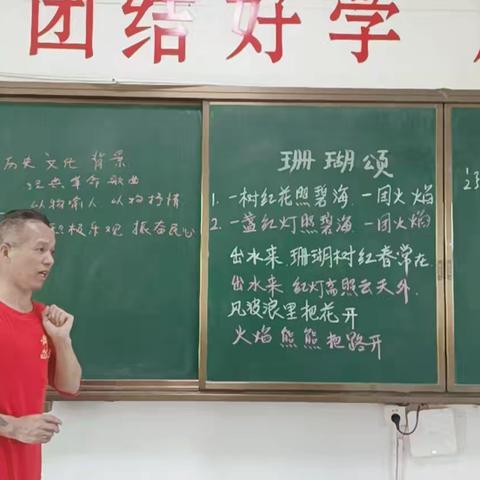 团结好学
历史文化背景
经典革命歌曲
以物喻人、以物抒情
积极乐观 振奋民心
珊瑚颂
1. 一树红花照碧海，一团火焰
2. 一盏红灯照碧海，一团火焰
出水来，珊瑚树红春常在，
出水来 红灯高照云天外，
风波浪里把花开
火焰熊熊把路开